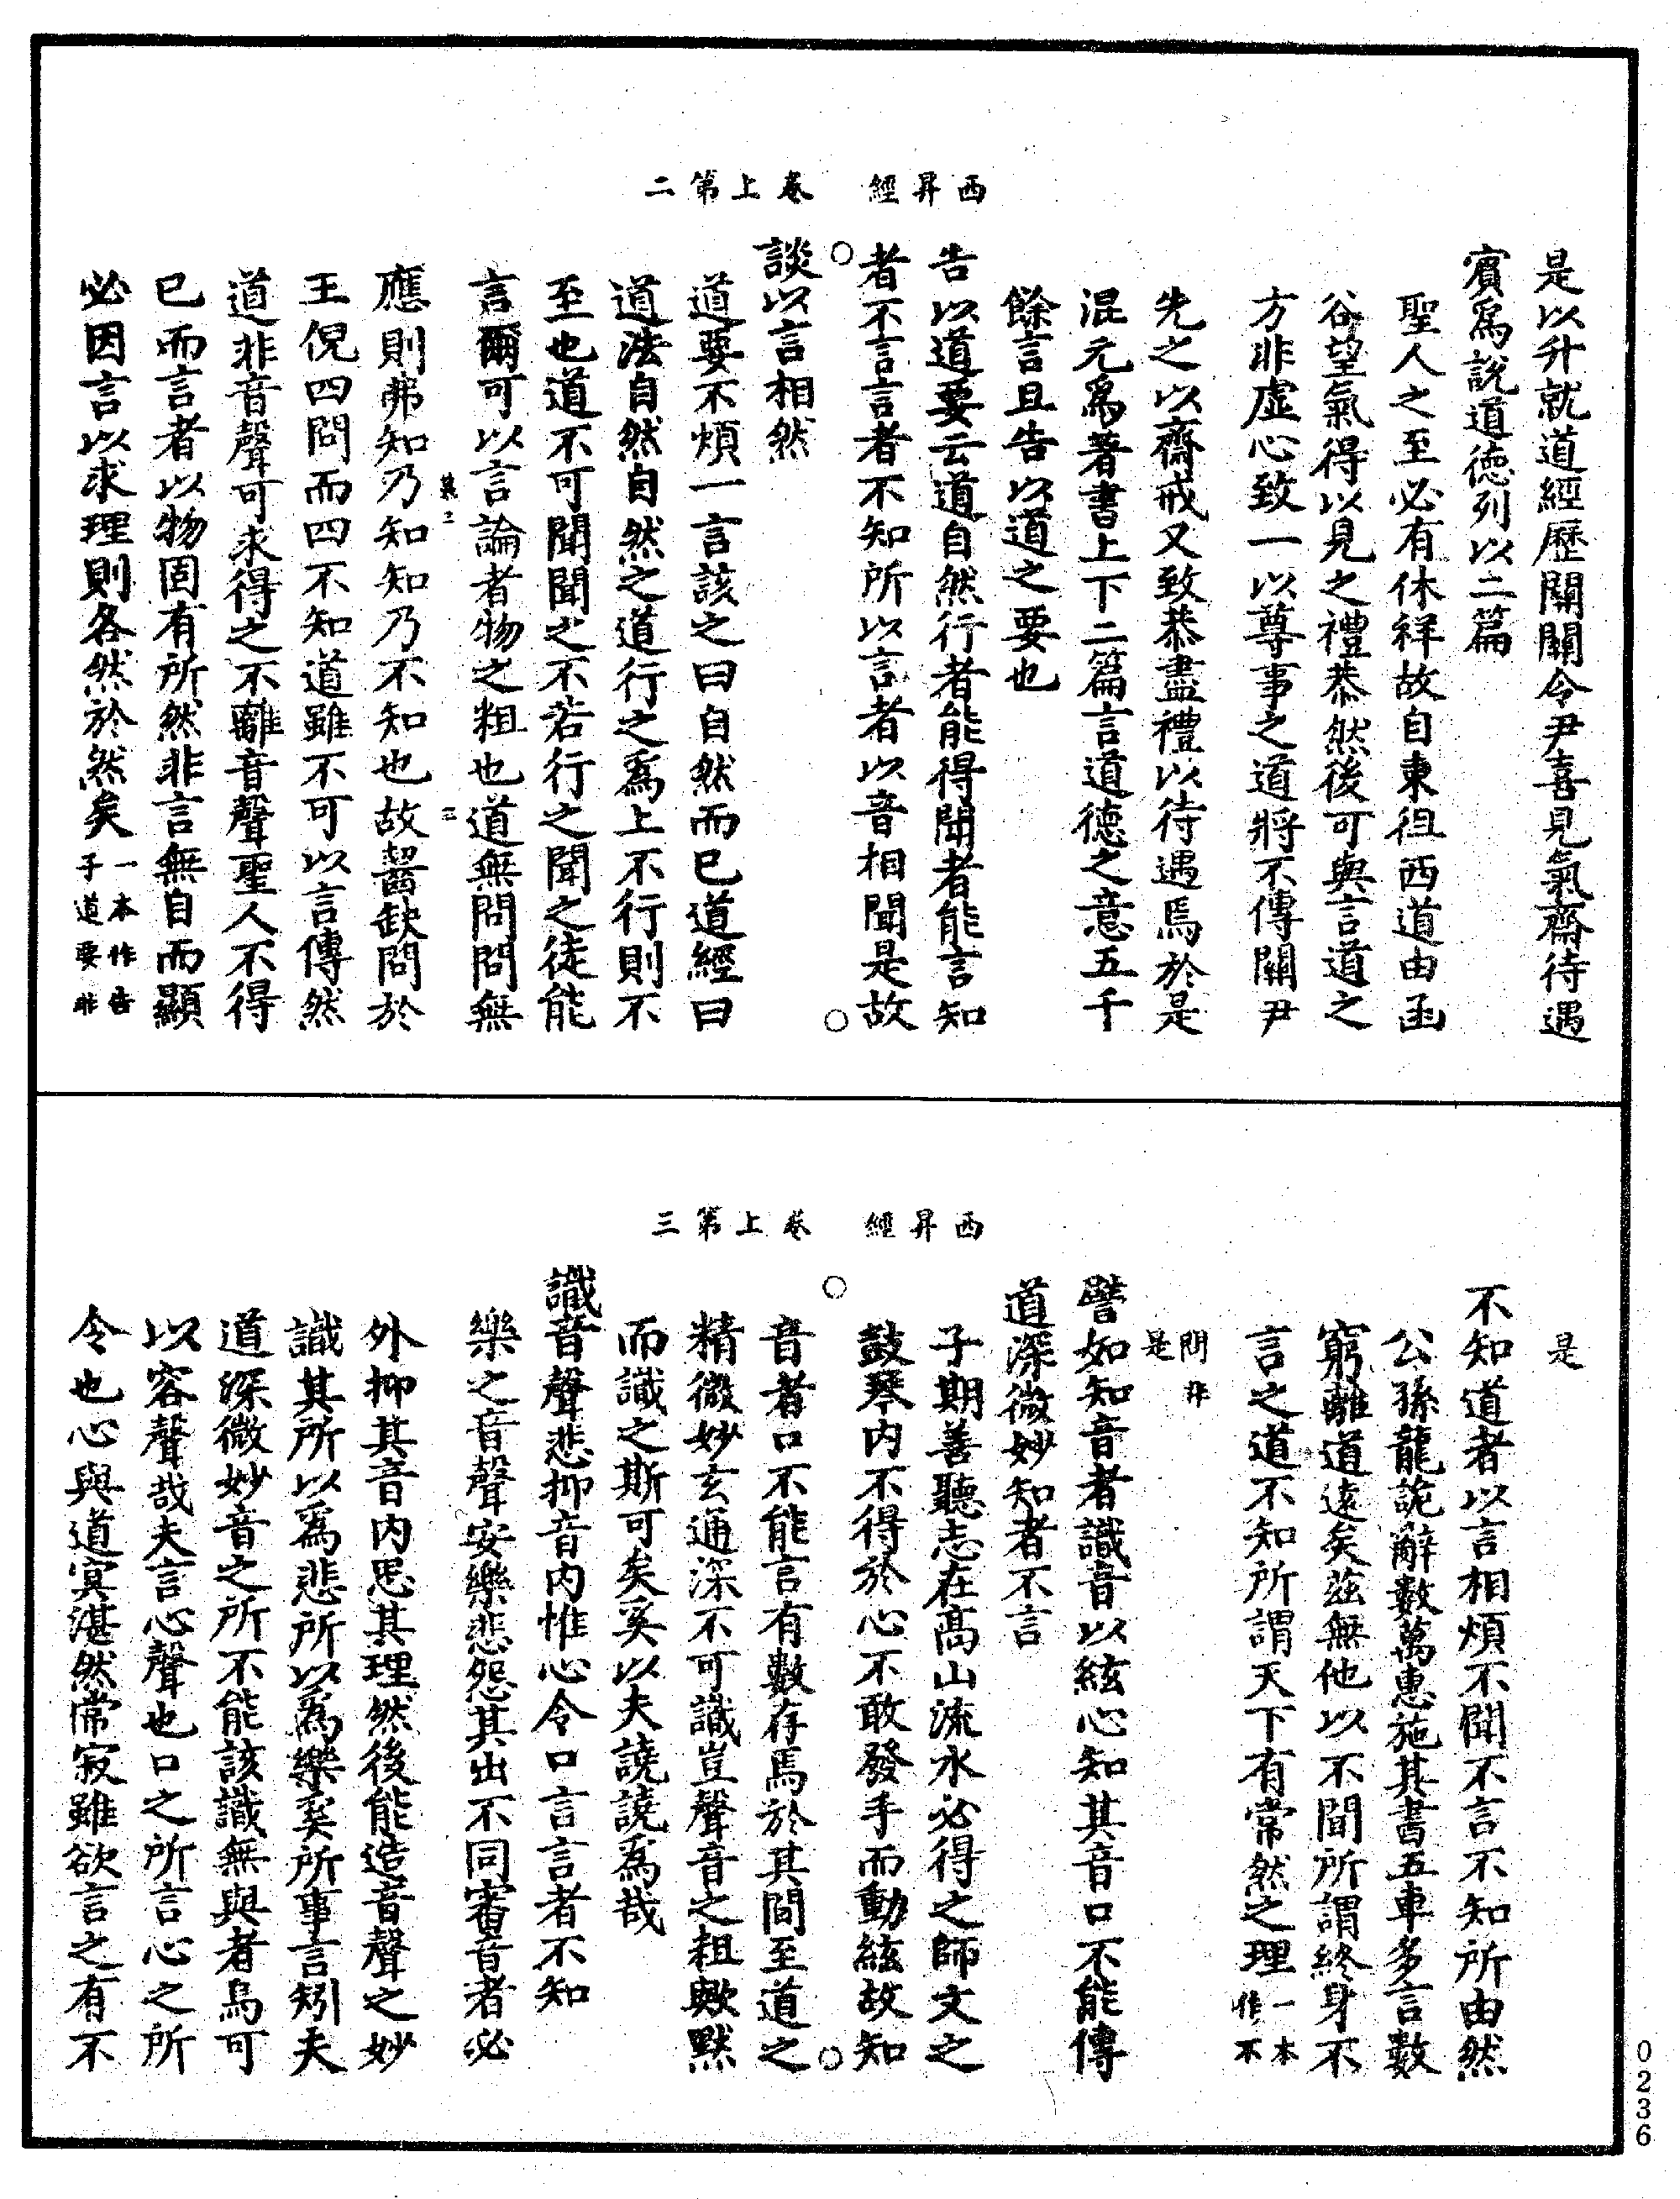 西昇經　卷上第二
是以升就道經歷關關令尹喜見氣齋待遇
賓爲說道德列以二篇
聖人之至必有休祥故自東徂西道由函
谷望氣得以見之禮恭然後可與言道之
方非虛心致一以尊事之道將不傳關尹
先之以齋戒又致恭盡禮以待遇焉於是
混元爲著書上下二篇言道德之意五千
餘言且告以道之要也
告以道要云道自然行者能得聞者能言知
者不言言者不知所以言者以音相聞是故
談以言相然
道要不煩一言該之曰自然而已道經曰
道法自然自然之道行之爲上不行則不
至也道不可聞聞之不若行之聞之徒能
言爾可以言論者物之粗也道無問問無
應則弗知乃知知乃不知也故齧缺問於
王倪四問而四不知道雖不可以言傳然
道非音聲可求得之不離音聲聖人不得
已而言者以物固有所然非言無自而顯
必因言以求理則各然於然矣一本作告
子道要非
西昇經　卷上第三
是
不知道者以言相煩不聞不言不知所由然
公孫龍詭辭數萬惠施其書五車多言數
窮離道遠矣茲無他以不聞所謂終身不
言之道不知所謂天下有常然之理一本
作不
問作
是
譬如知音者識音以絃心知其音口不能傳
道深微妙知者不言
子期善聽志在高山流水必得之師文之
鼓琴内不得於心不敢發手而動絃故知
音者口不能言有數存焉於其間至道之
精微妙玄通深不可識豈聲音之粗歟默
而識之斯可矣奚以夫譊譊爲哉
識音聲悲抑音内惟心令口言言者不知
樂之音聲安樂悲怨其出不同審音者必
外抑其音内思其理然後能造音聲之妙
識其所以爲悲所以爲樂奚所事言矧夫
道深微妙音之所不能該識無與者烏可
以容聲哉夫言心聲也口之所言心之所
令也心與道冥湛然常寂雖欲言之有不
0236